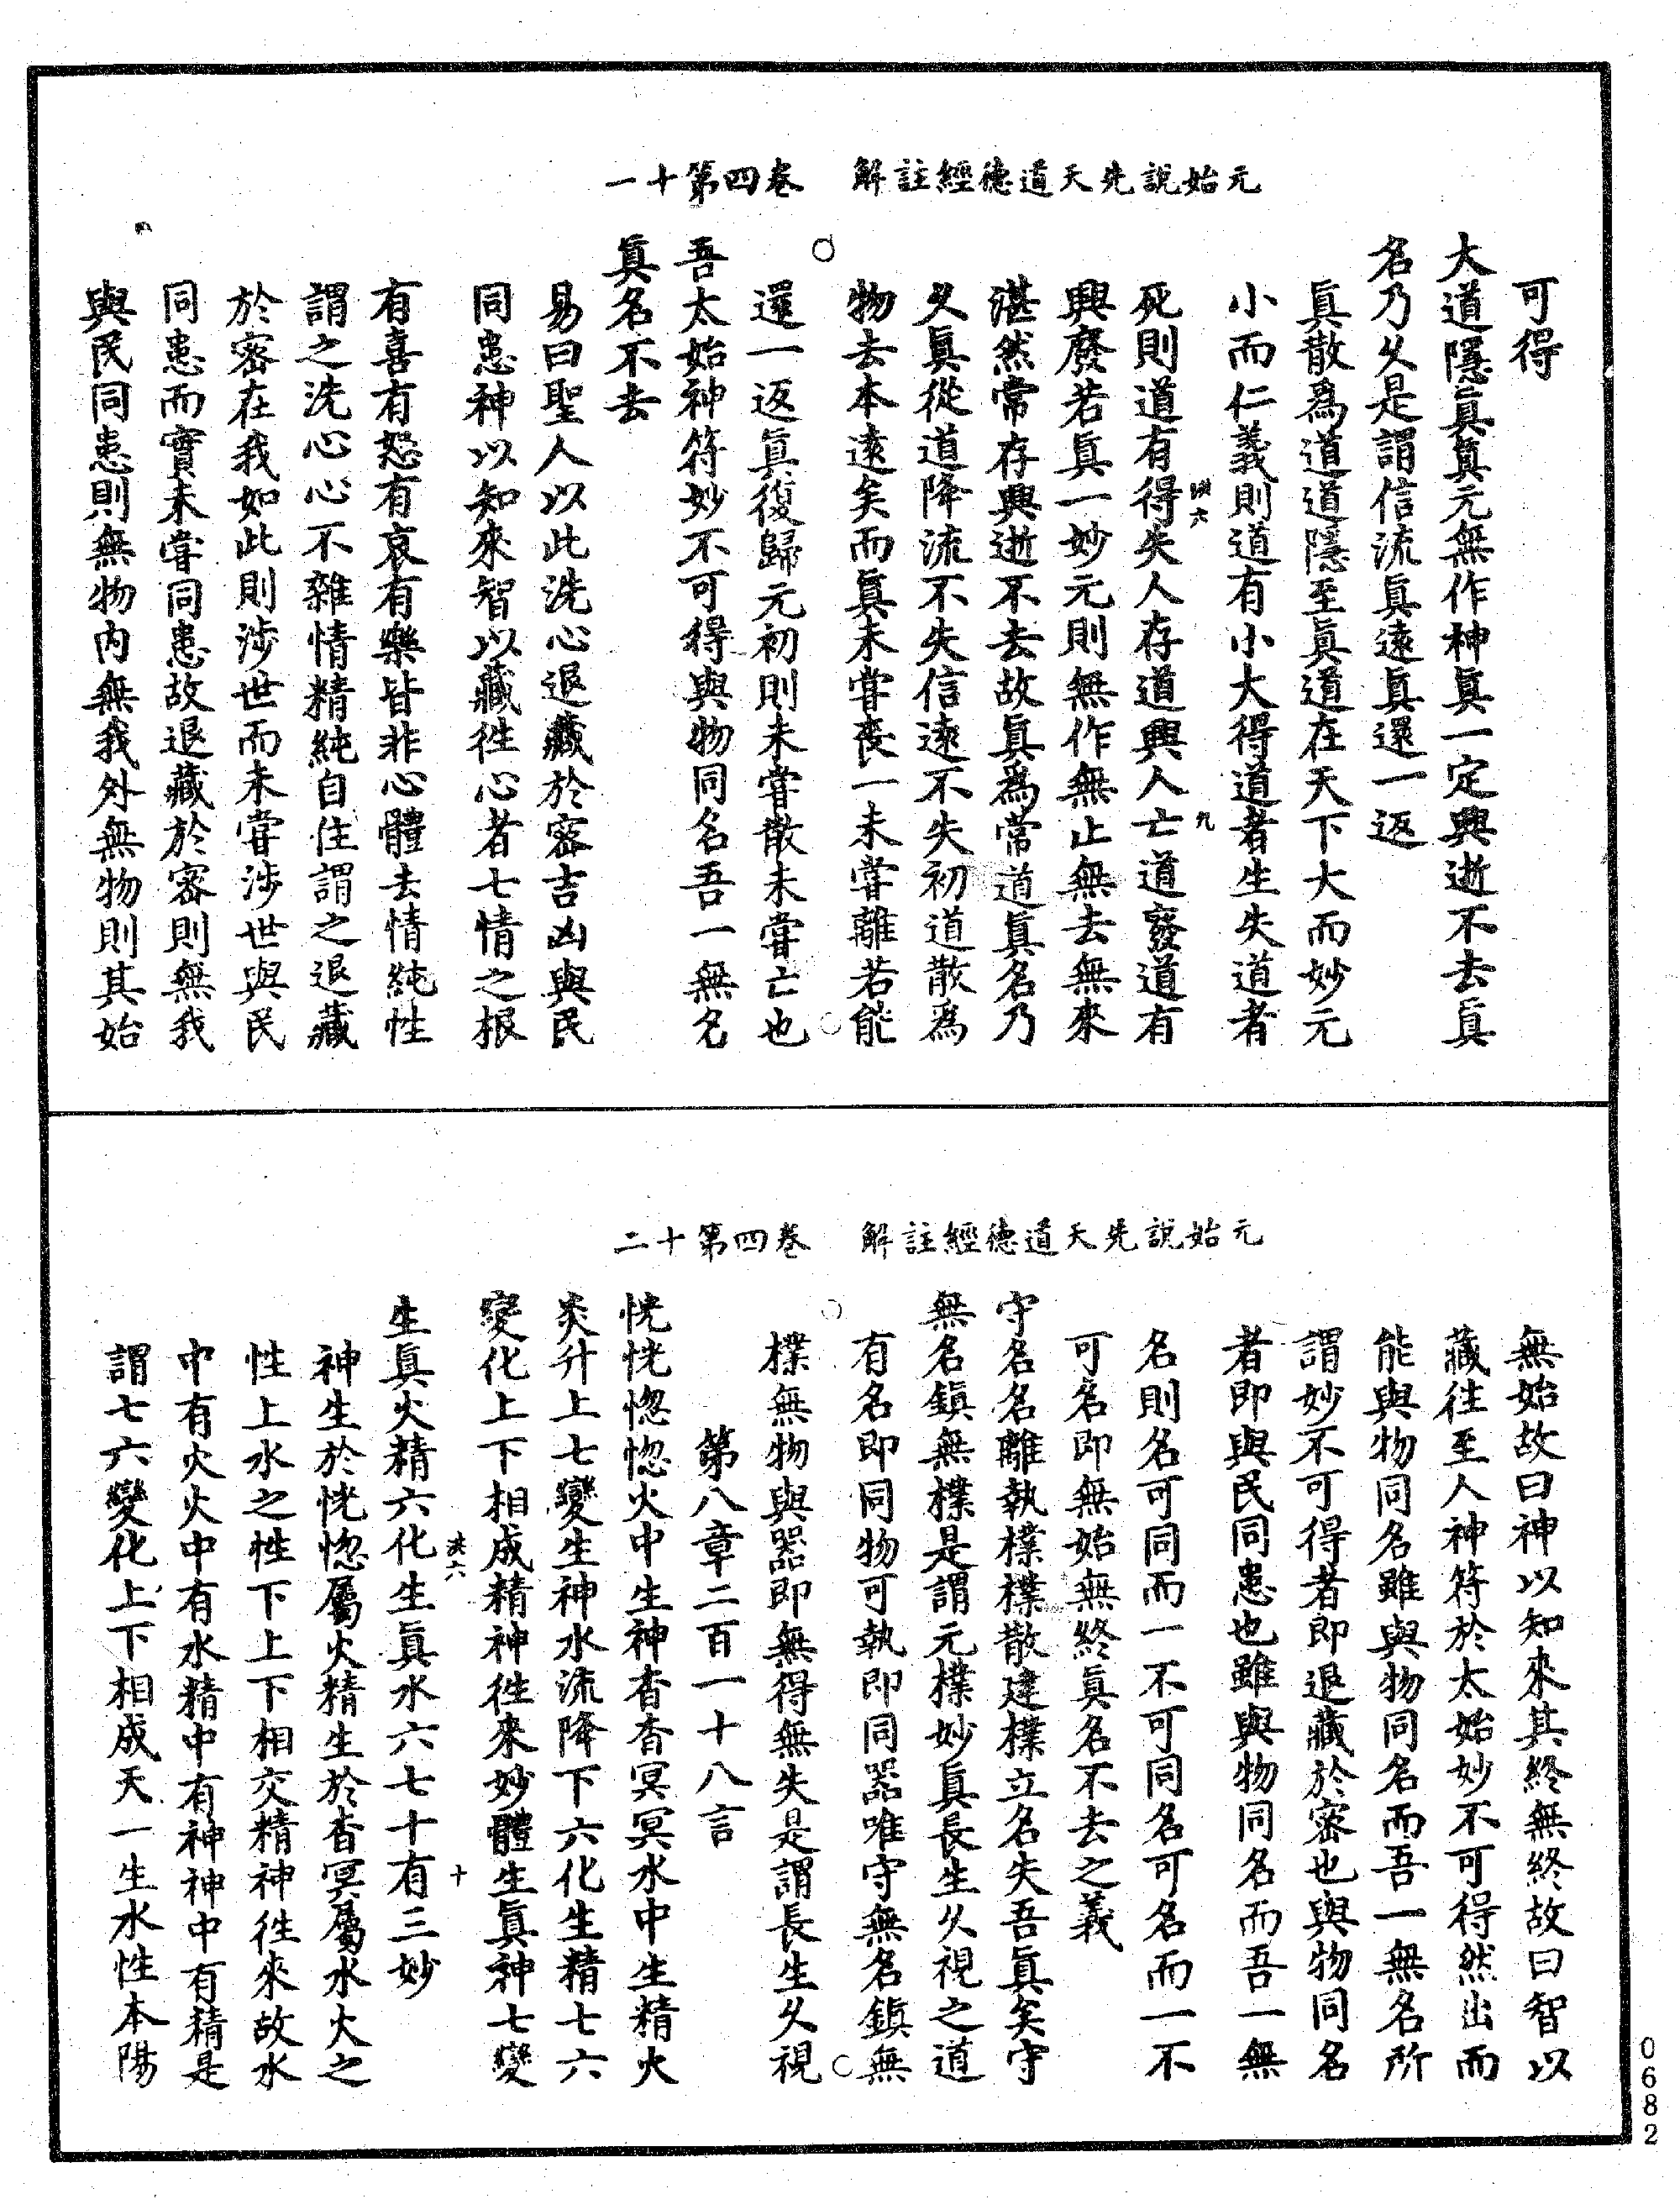 元始說先天道德經註解　卷四第十一
可得
大道隱眞眞元無作神眞一定興逝不去眞
名乃久是謂信流眞遠眞還一返
眞散爲道道隱至眞道在天下大而妙元
小而仁義則道有小大得道者生失道者
死則道有得失人存道興人亡道廢道有
洪六
九
興廢若眞一妙元則無作無止無去無來
湛然常存興逝不去故眞爲常道眞名乃
久眞從道降流不失信遠不失初道散爲
物去本遠矣而眞未嘗喪一未嘗離若能
還一返眞復歸元初則未嘗散未嘗亡也
吾太始神符妙不可得與物同名吾一無名
眞名不去
易曰聖人以此洗心退藏於密吉凶與民
同患神以知來智以藏徃心者七情之根
有喜有怒有哀有樂皆非心體去情純性
謂之洗心心不雜情精純自住謂之退藏
於密在我如此則涉世而未嘗涉世與民
同患而實未嘗同患故退藏於密則無我
與民同患則無物内無我外無物則其始
元始說先天道德經註解　卷四第十二
無始故曰神以知來其終無終故曰智以
藏往至人神符於太始妙不可得然出而
能與物同名雖與物同名而吾一無名所
謂妙不可得者即退藏於密也與物同名
者即與民同患也雖與物同名而吾一無
名則名可同而一不可同名可名而一不
可名即無始無終眞名不去之義
守名名離執樸樸散建樸立名失吾眞矣守
無名鎭無樸是謂元樸妙眞長生久視之道
有名即同物可執即同器唯守無名鎭無
樸無物與器即無得無失是謂長生久視
第八章二百一十八言
恍恍惚惚火中生神杳杳冥冥水中生精火
炎升上七變生神水流降下六化生精七六
變化上下相成精神徃來妙體生眞神七變
生眞火精六化生眞水六七十有三妙
洪六
十
神生於恍惚屬火精生於杳冥屬水火之
性上水之性下上下相交精神徃來故水
中有火火中有水精中有神神中有精是
謂七六變化上下相成天一生水性本陽
0682